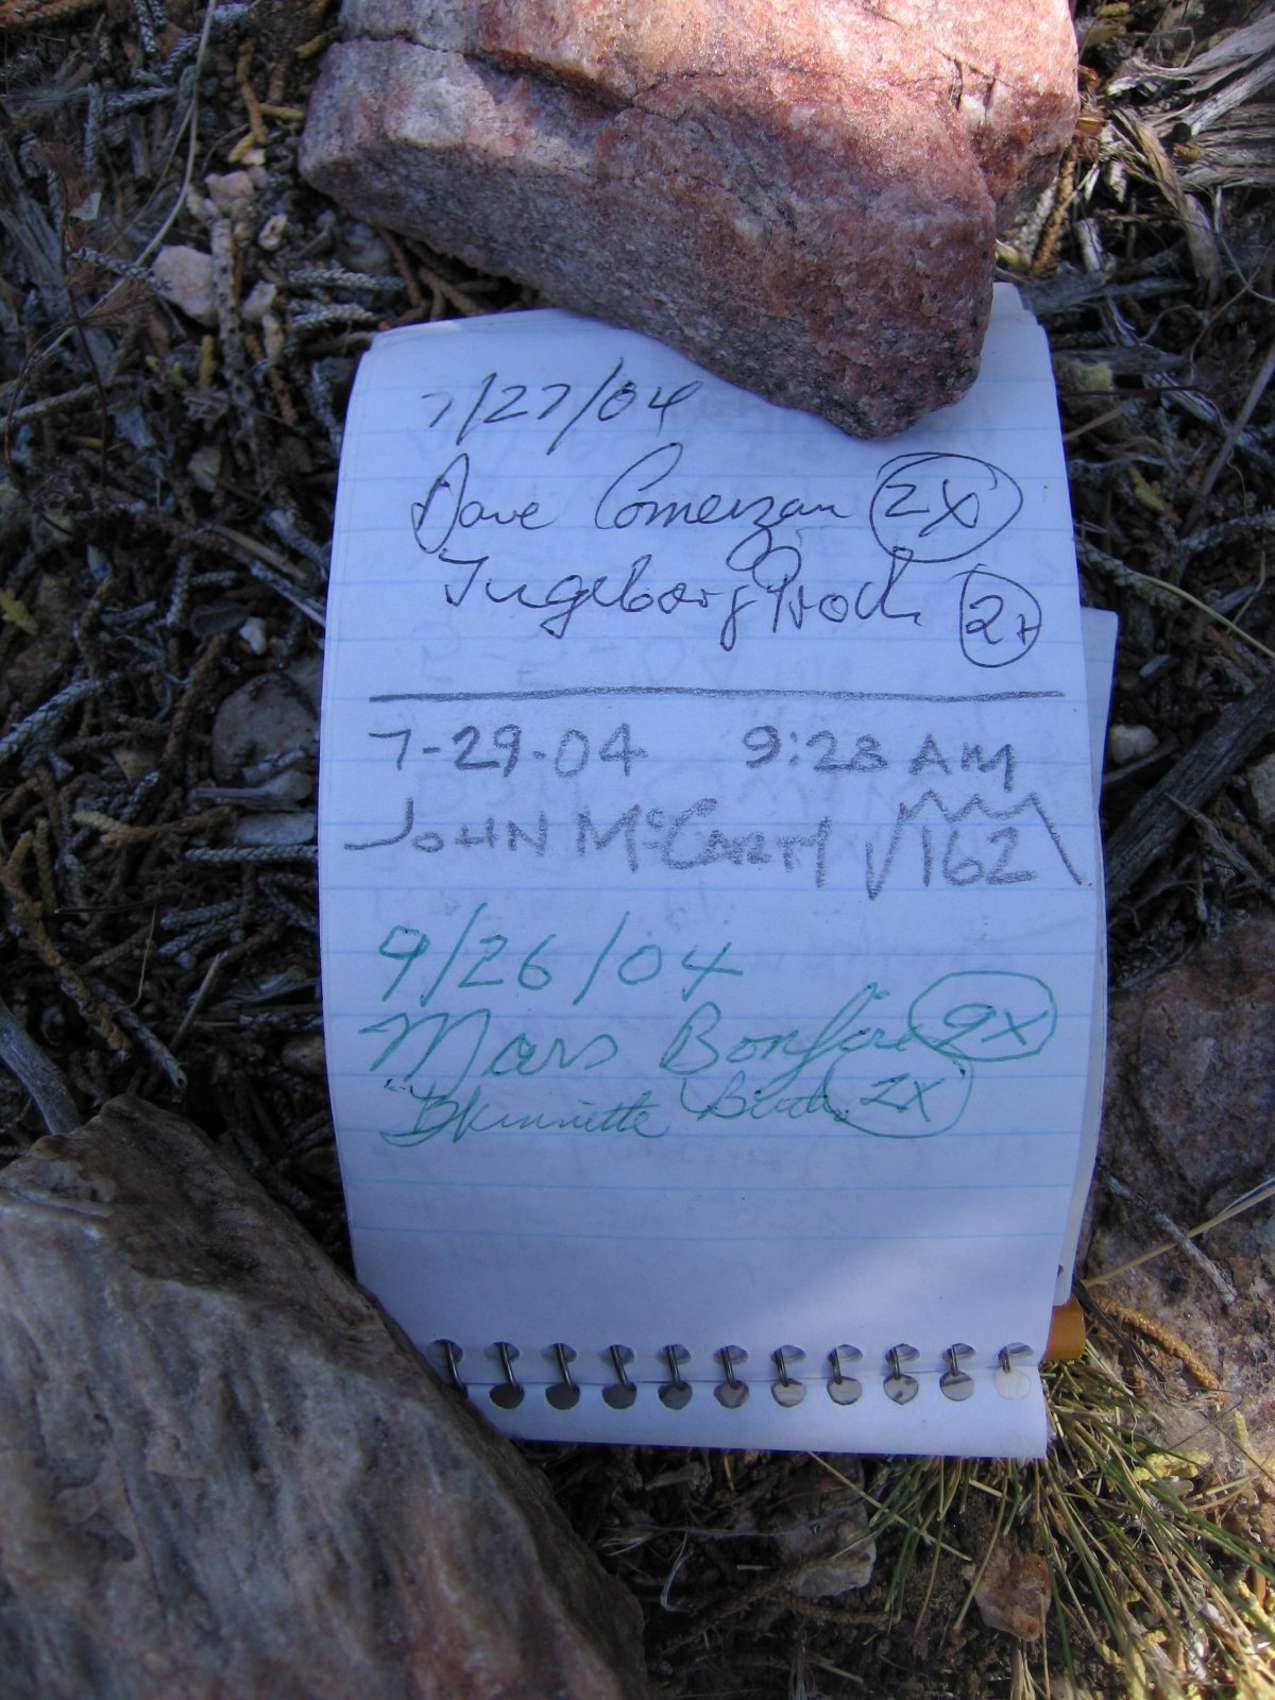 7/27/04
Dave Comerzan 2X
Ingeborg Prochn 2x
7-29-04 9:28 AM
JOHN McCARTY 162
9/26/04
Mars Bonfire 9X
2X